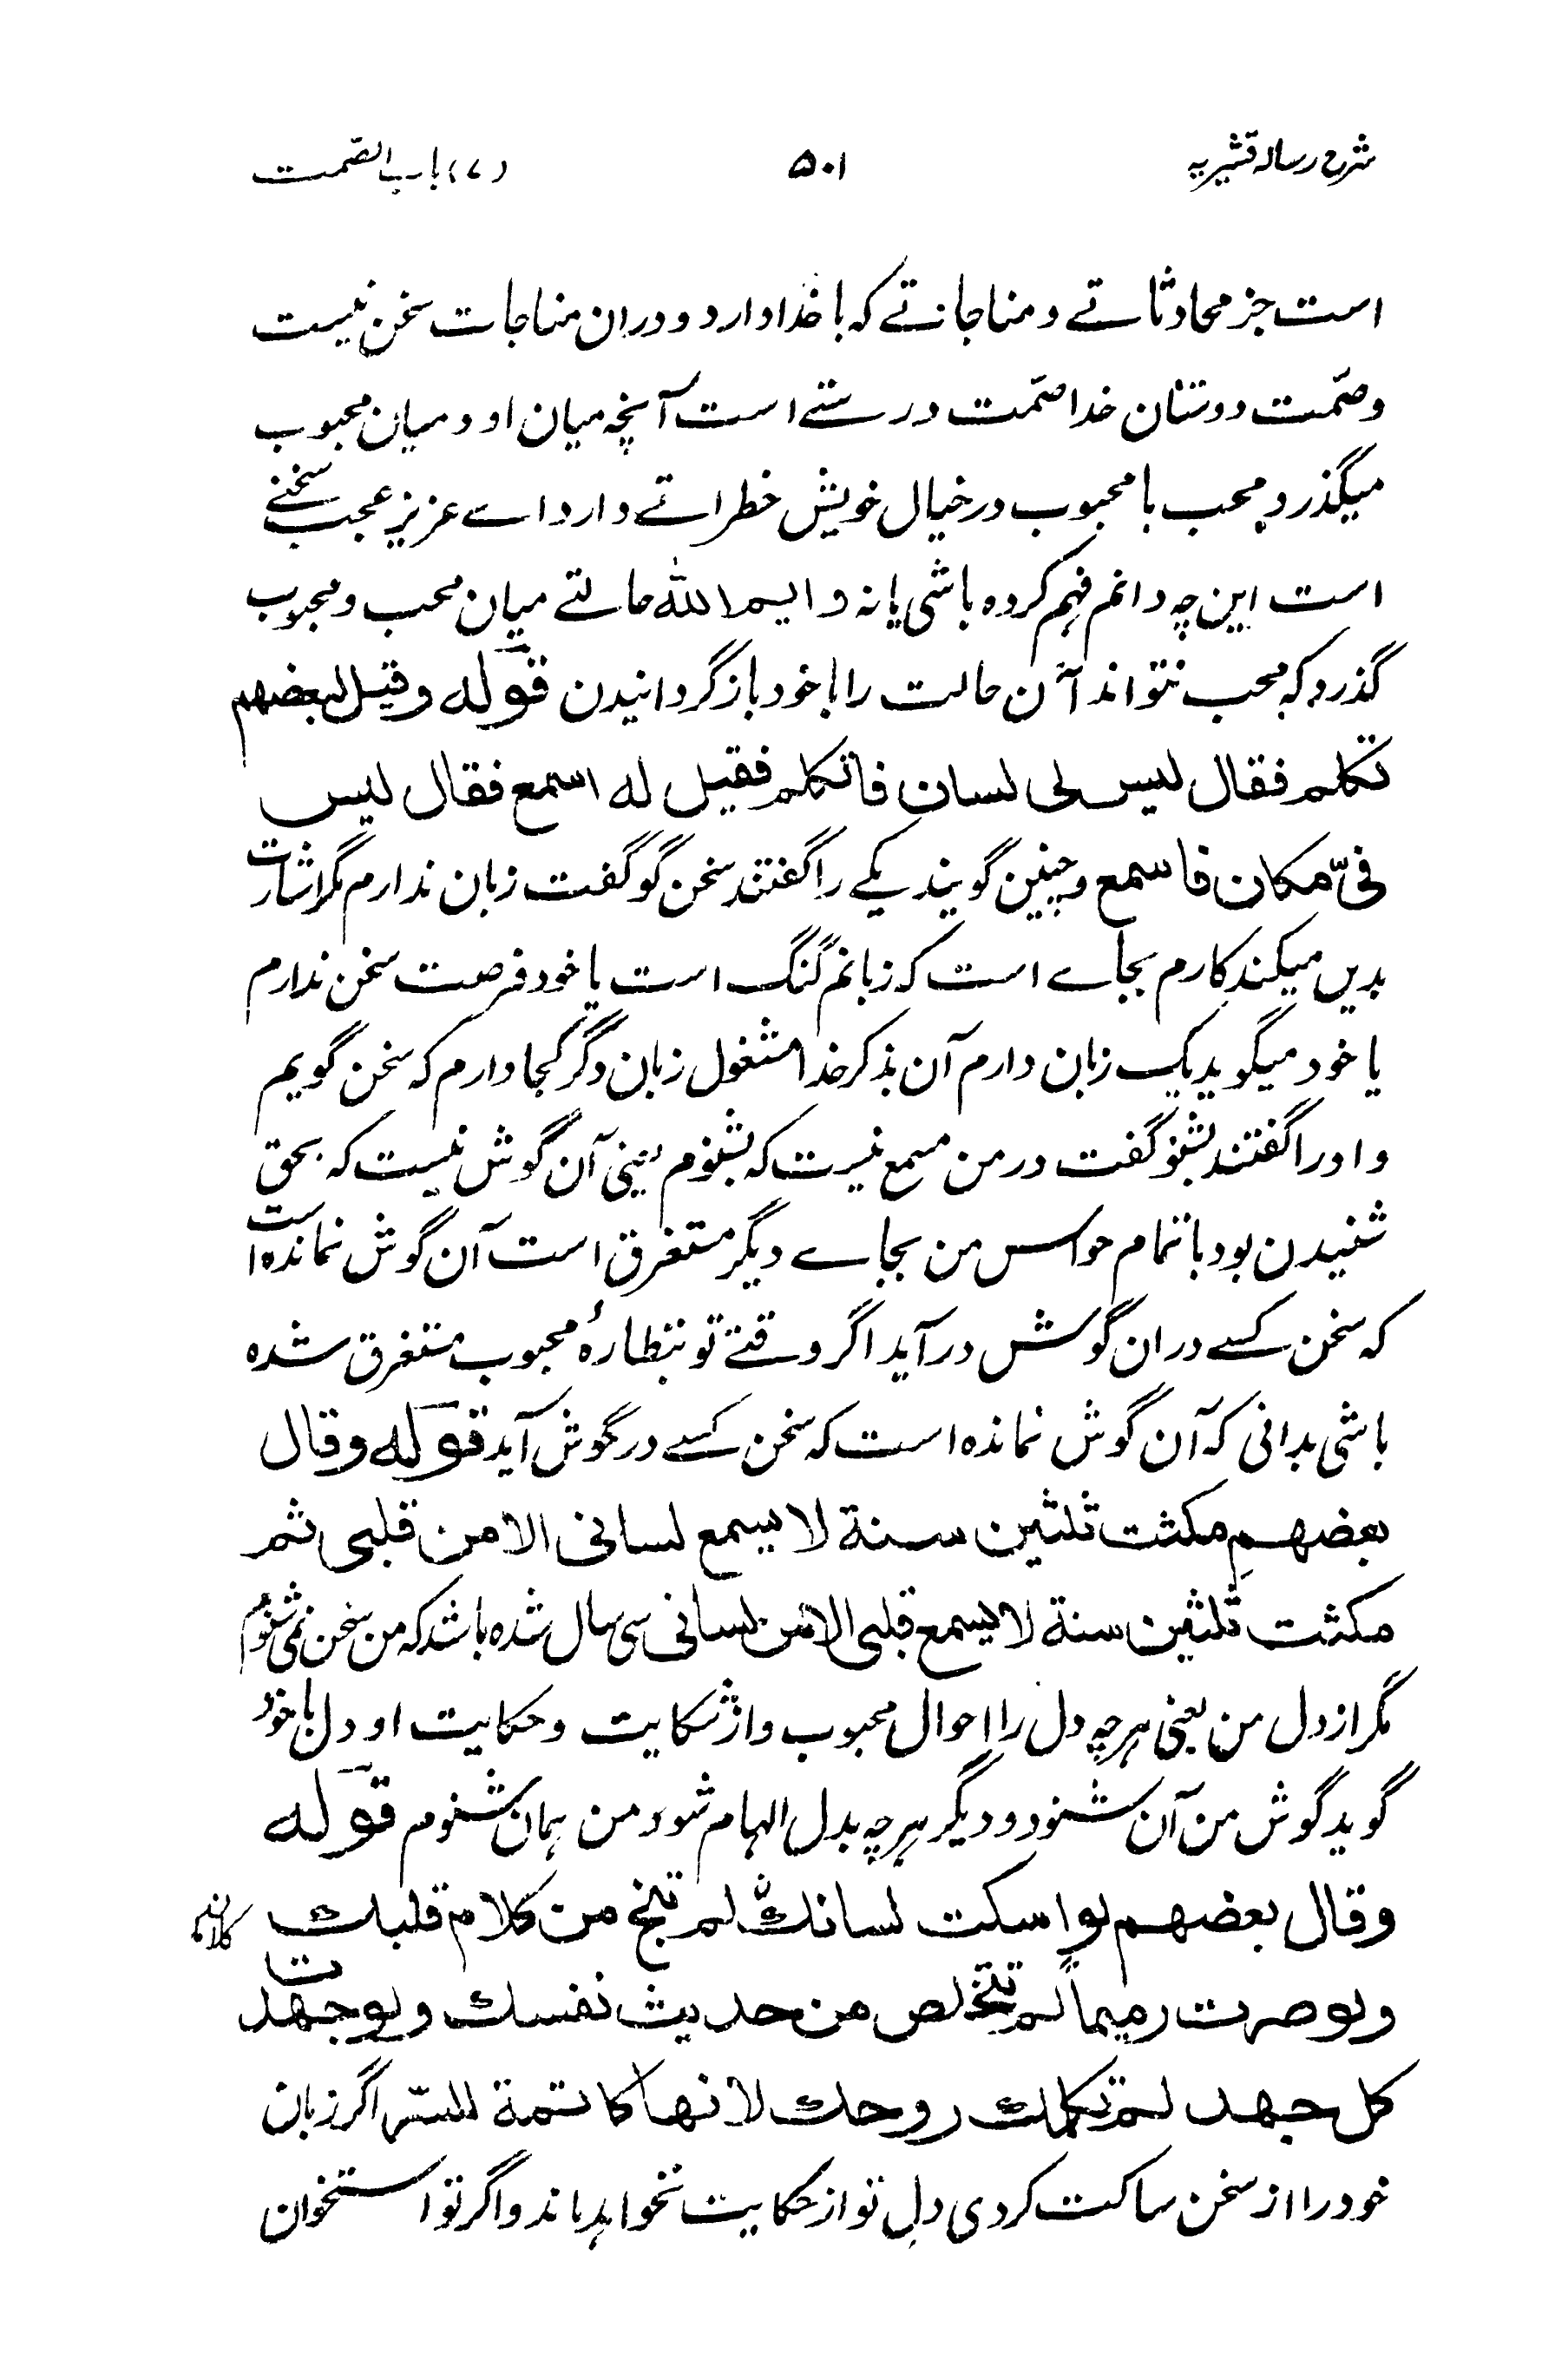 شرح رساله قشیریه ۵۰۱ (۷) باب الصّمت
است جز محادثاتے و مناجاتے که با خدا دارد و دران مناجات سخن نیست
و صمّت دوستان خدا صمّت درستے است آنچه میان او و میان محبوب
میگذرد محب با محبوب در خیال خویش خطراتے دارد اے عزیز عجب سخنے
است این چه دانم فهم کرده باشی یا نه و ایم الله حالتے میان محب و محبوب
گذرد که محب نتواند آن حالت را با خود باز گردانیدن قوله وقیل لبعضهم
تکلم فقال لیس لی لسان فاتکلم فقیل له اسمع فقال لیس
فیّ مکان فاسمع و چنین گویند یکے را گفتند سخن گو گفت زبان ندارم مگر اشارت
بدیں میکند کارم بجاے است که زبانم گنگ است یا خود فرصت سخن ندارم
یا خود میگوید یک زبان دارم آن بذکر خدا مشغول زبان دگر کجا دارم که سخن گویم
و او را گفتند بشنو گفت در من مسمع نیست که بشنوم یعنی آن گوش نیست که بحق
شنیدن بود با تمام حواس من بجاے دیگر مستغرق است آن گوش نمانده است
که سخن کسے دران گوش درآید اگر وقتے تو بنظارهٔ محبوب مستغرق شده
باشی بدانی که آن گوش نمانده است که سخن کسے در گوش آید قوله وقال
بعضهم مکثت ثلثین سنة لا یسمع لسانی الا من قلبی ثم
مکثت ثلثین سنة لا یسمع قلبی الا من لسانی سی سال شده باشد که من سخن نمی شنوم
مگر از دل من یعنی هرچه دل را احوال محبوب و از شکایت و حکایت او دل با خود
گوید گوش من آن شنود و دیگر هرچه بدل الهام شود من همان شنوم قوله
وقال بعضهم لو اسکت لسانك لم تنج من کلام قلبك
ولو صرت رمیماً لم تتخلص من حدیث نفسك ولو جهدت
کل جهد لم تکلمك روحك لانها کاتمة للسّر اگر زبان
خود را از سخن ساکت کردی دل تو از حکایت نخواهد ماند و اگر تو استخوان